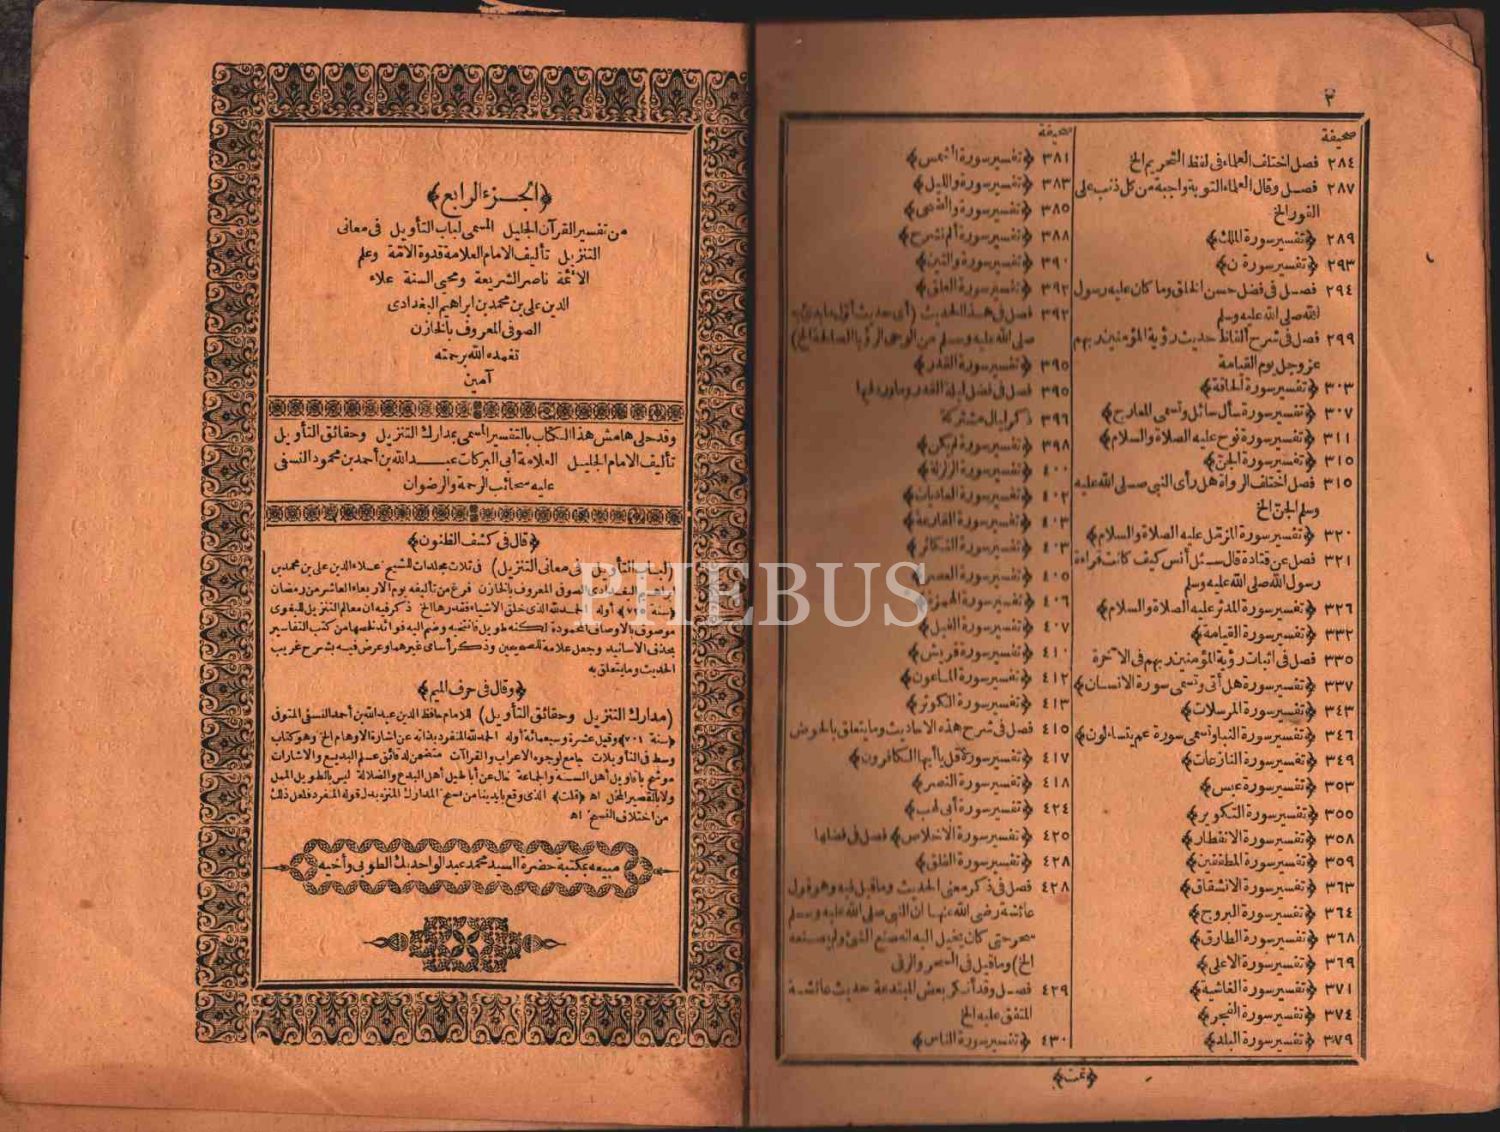 ٣
صحيفة
٢٨٤ فصل اختلف العلماء فى لفظ التحريم الخ
٢٨٧ فصل وقال العلماء التوبة واجبة من كل ذنب على
الفور الخ
٢٨٩ ﴿تفسير سورة الملك﴾
٢٩٣ ﴿تفسير سورة ن﴾
٢٩٤ فصل فى فضل حسن الخلق وما كان عليه رسول
الله صلى الله عليه وسلم
٢٩٩ فصل فى شرح ألفاظ حديث رؤية المؤمنين ربهم
عز وجل يوم القيامة
٣٠٣ ﴿تفسير سورة الحاقة﴾
٣٠٧ ﴿تفسير سورة سأل سائل وتسمى المعارج﴾
٣١١ ﴿تفسير سورة نوح عليه الصلاة والسلام﴾
٣١٥ ﴿تفسير سورة الجن﴾
٣١٥ فصل اختلف الرواة هل رأى النبى صلى الله عليه
وسلم الجن الخ
٣٢٠ ﴿تفسير سورة المزمل عليه الصلاة والسلام﴾
٣٢١ فصل عن قتادة قال سئل أنس كيف كانت قراءة
رسول الله صلى الله عليه وسلم
٣٢٦ ﴿تفسير سورة المدثر عليه الصلاة والسلام﴾
٣٣٢ ﴿تفسير سورة القيامة﴾
٣٣٥ فصل فى اثبات رؤية المؤمنين ربهم فى الآخرة
٣٣٧ ﴿تفسير سورة هل أتى وتسمى سورة الانسان﴾
٣٤٣ ﴿تفسير سورة المرسلات﴾
٣٤٦ ﴿تفسير سورة النبا وتسمى سورة عم يتساءلون﴾
٣٤٩ ﴿تفسير سورة النازعات﴾
٣٥٣ ﴿تفسير سورة عبس﴾
٣٥٥ ﴿تفسير سورة التكوير﴾
٣٥٨ ﴿تفسير سورة الانفطار﴾
٣٥٩ ﴿تفسير سورة المطففين﴾
٣٦٣ ﴿تفسير سورة الانشقاق﴾
٣٦٤ ﴿تفسير سورة البروج﴾
٣٦٨ ﴿تفسير سورة الطارق﴾
٣٦٩ ﴿تفسير سورة الاعلى﴾
٣٧١ ﴿تفسير سورة الغاشية﴾
٣٧٤ ﴿تفسير سورة الفجر﴾
٣٧٩ ﴿تفسير سورة البلد﴾
صحيفة
٣٨١ ﴿تفسير سورة الشمس﴾
٣٨٣ ﴿تفسير سورة والليل﴾
٣٨٥ ﴿تفسير سورة والضحى﴾
٣٨٨ ﴿تفسير سورة ألم نشرح﴾
٣٩٠ ﴿تفسير سورة والتين﴾
٣٩٢ ﴿تفسير سورة العلق﴾
٣٩٢ فصل فى هذا الحديث (أى حديث أول ما بدئ به
صلى الله عليه وسلم من الوحى الرؤيا الصالحة الخ)
٣٩٥ ﴿تفسير سورة القدر﴾
٣٩٥ فصل فى فضل ليلة القدر وما ورد فيها
٣٩٦ ذكر ليال مشتركة
٣٩٨ ﴿تفسير سورة لم يكن﴾
٤٠٠ ﴿تفسير سورة الزلزلة﴾
٤٠٢ ﴿تفسير سورة العاديات﴾
٤٠٣ ﴿تفسير سورة القارعة﴾
٤٠٣ ﴿تفسير سورة التكاثر﴾
٤٠٥ ﴿تفسير سورة العصر﴾
٤٠٦ ﴿تفسير سورة الهمزة﴾
٤٠٧ ﴿تفسير سورة الفيل﴾
٤١٠ ﴿تفسير سورة قريش﴾
٤١٢ ﴿تفسير سورة الماعون﴾
٤١٣ ﴿تفسير سورة الكوثر﴾
٤١٥ فصل فى شرح هذه الاحاديث وما يتعلق بالحوض
٤١٧ ﴿تفسير سورة قل يا أيها الكافرون﴾
٤١٨ ﴿تفسير سورة النصر﴾
٤٢٤ ﴿تفسير سورة أبى لهب﴾
٤٢٥ ﴿تفسير سورة الاخلاص﴾ فصل فى فضلها
٤٢٨ ﴿تفسير سورة الفلق﴾
٤٢٨ فصل فى ذكر معنى الحديث وما قيل فيه وهو قول
عائشة رضى الله عنها ان النبى صلى الله عليه وسلم
سحر حتى كان يخيل اليه انه صنع الشئ ولم يصنعه
الخ) وما قيل فى السحر والرقى
٤٢٩ فصل وقد أنكر بعض المبتدعة حديث عائشة
المتفق عليه الخ
٤٣٠ ﴿تفسير سورة الناس﴾
﴿تمت﴾
﴿الجزء الرابع﴾
من تفسير القرآن الجليل المسمى لباب التأويل فى معانى
التنزيل تأليف الامام العلامة قدوة الامة وعلم
الائمة ناصر الشريعة ومحيى السنة علاء
الدين على بن محمد بن ابراهيم البغدادى
الصوفى المعروف بالخازن
تغمده الله برحمته
آمين
وقد حلى هامش هذا الكتاب بالتفسير المسمى بمدارك التنزيل وحقائق التأويل
تأليف الامام الجليل العلامة أبى البركات عبد الله بن أحمد بن محمود النسفى
عليه سحائب الرحمة والرضوان
﴿قال فى كشف الظنون﴾
(لباب التأويل فى معانى التنزيل) فى ثلاث مجلدات للشيخ علاء الدين على بن محمد بن
البغدادى الصوفى المعروف بالخازن فرغ من تأليفه يوم الاربعاء العاشر من رمضان
﴿سنة ٧٢٥﴾ أوله الحمد لله الذى خلق الاشياء فقدرها الخ ذكر فيه ان معالم التنزيل للبغوى
موصوف بالاوصاف المحمودة لكنه طويل فانتخبه وضم اليه فوائد لخصها من كتب التفاسير
بحذف الاسانيد وجعل علامة للصحيحين وذكر أسامى غيرهما وعرض فيه بشرح غريب
الحديث وما يتعلق به
﴿وقال فى حرف الميم﴾
(مدارك التنزيل وحقائق التأويل) للامام حافظ الدين عبد الله بن أحمد النسفى المتوفى
﴿سنة ٧٠١﴾ وقيل عشرة وسبعمائة أوله الحمد لله المنفرد بذاته عن اشارة الاوهام الخ وهو كتاب
وسط فى التأويلات جامع لوجوه الاعراب والقراآت متضمن لدقائق علم البديع والاشارات
موشح باقاويل أهل السنة والجماعة خال عن أباطيل أهل البدع والضلالة ليس بالطويل الممل
ولا بالقصير المخل اه ﴿قلت﴾ الذى وقع بايدينا من نسخ المدارك المنزه بدل قوله المنفرد فلعل ذلك
من اختلاف النسخ اه
مبيعه بمكتبة حضرة السيد محمد عبد الواحد بك الطوبى وأخيه
PHEBUS